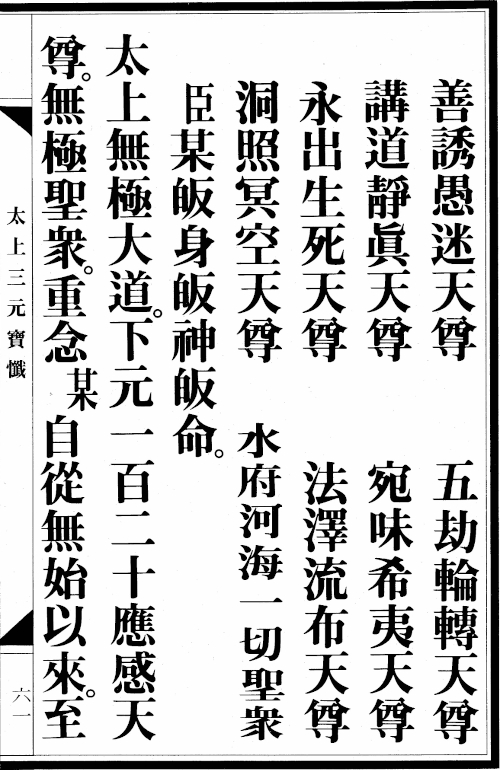 善誘愚迷天尊　五劫輪轉天尊
講道靜眞天尊　宛味希夷天尊
永出生死天尊　法澤流布天尊
洞照冥空天尊　水府河海一切聖衆
臣某皈身皈神皈命。
太上無極大道。下元一百二十應感天
尊。無極聖衆。重念某自從無始以來。至
太上三元寶懺
六一